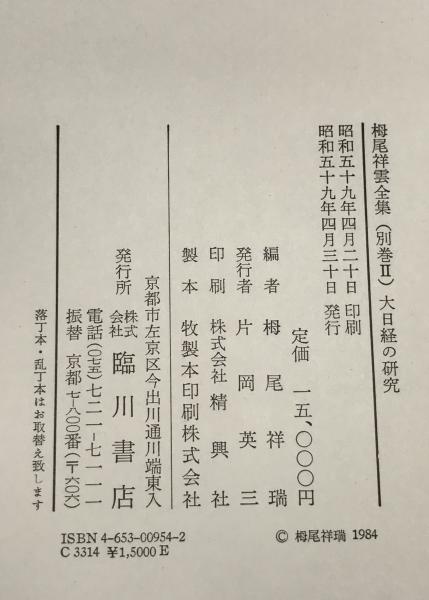 栂尾祥雲全集(別巻Ⅱ)大日経の研究
昭和五十九年四月二十日 印刷
昭和五十九年四月三十日 発行
定価 一五、〇〇〇円
編者 栂尾祥瑞
発行者 片岡英三
印刷 株式会社精興社
製本 牧製本印刷株式会社
京都市左京区今出川通川端東入
発行所 株式会社 臨川書店
電話(〇七五)七二一-七一一一
振替 京都七-八〇〇番(〒六〇六)
落丁本・乱丁本はお取替え致します
ISBN 4-653-00954-2
C 3314 ¥1,5000 E
© 栂尾祥瑞 1984